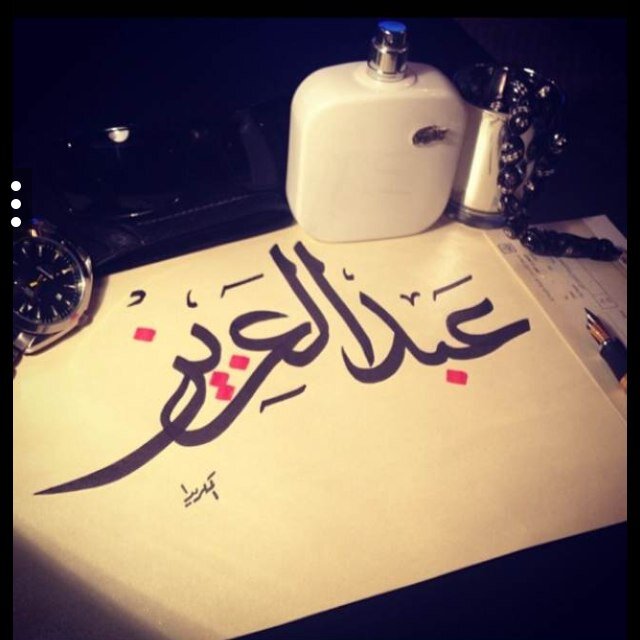 عبدالعزيز